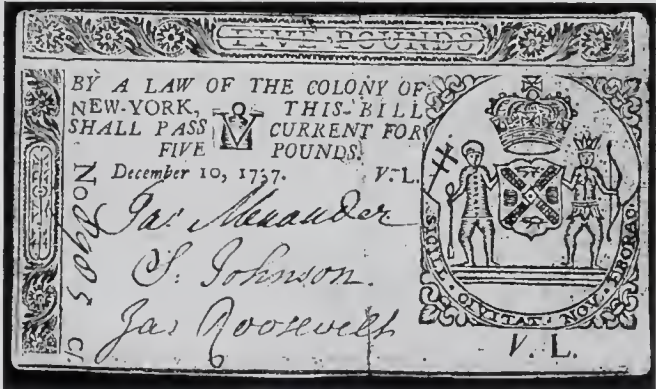 FIVE POUNDS
BY A LAW OF THE COLONY OF
NEW-YORK, THIS BILL
SHALL PASS CURRENT FOR
FIVE POUNDS.
December 10, 1737. V. L.
Jas Alexander
S. Johnson.
Jas Roosevelt
N. YORK
SIGIL. CIVITAT. NOV. EBORAC.
V. L.